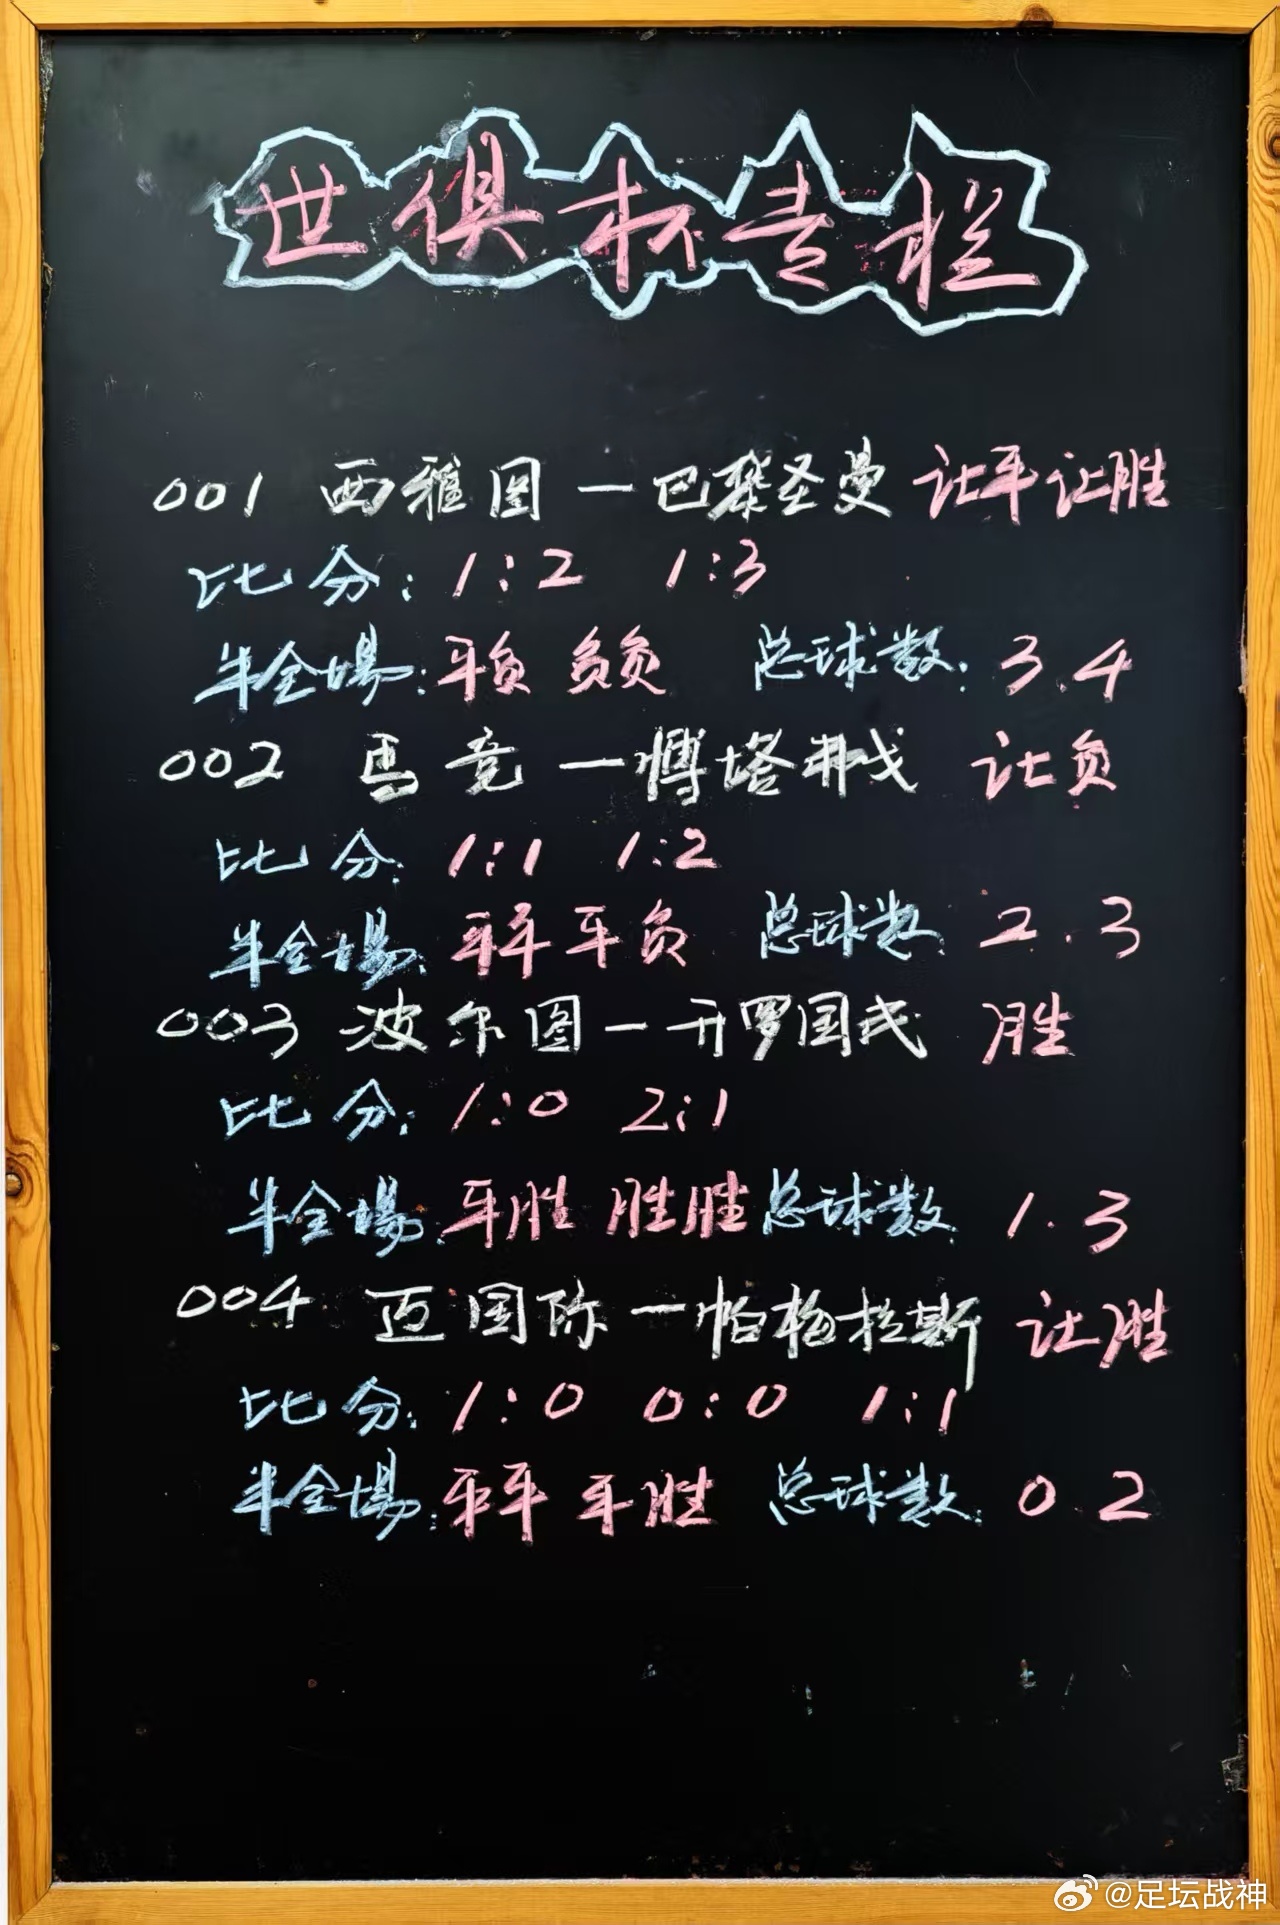 世俱杯专栏
001 西雅图 — 巴黎圣曼 让平让胜
比分: 1:2 1:3
半全場: 平负 负负 总球数: 3.4
002 马竞 — 博塔弗戈 让负
比分: 1:1 1:2
半全場: 平平 平负 总球数: 2.3
003 波尔图 — 开罗国民 胜
比分: 1:0 2:1
半全場: 平胜 胜胜 总球数: 1.3
004 迈国际 — 帕梅拉斯 让胜
比分: 1:0 0:0 1:1
半全場: 平平 平胜 总球数: 0 2
@足坛战神